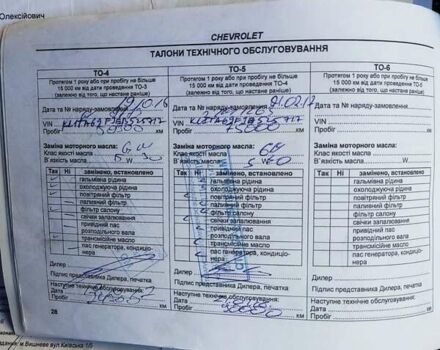 Олексійович
CHEVROLET
ТАЛОНИ ТЕХНІЧНОГО ОБСЛУГОВУВАННЯ
ТО-4
Протягом 1 року або при пробігу не більше
15 000 км від дати проведення ТО-3
(залежно від того, що настане раніше)
Дата та № наряду-замовлення
VIN
Пробіг км
Заміна моторного масла:
Клас якості масла
В`язкість масла 5 W 30
Так Ні замінено, встановлено
гальмівна рідина
охолоджуюча рідина
повітряний фільтр
паливний фільтр
фільтр салону
свічки запалювання
привідний пас
розподільного вала
трансмісійне масло
пас генератора, кондиціо-
нера
Дилер
Підпис представника Дилера, печатка
Наступне технічне
Дата
Пробіг км
28
ТО-5
Протягом 1 року або при пробігу не більше
15 000 км від дати проведення ТО-4
(залежно від того, що настане раніше)
Дата та № наряду-замовлення
VIN
Пробіг 75000 км
Заміна моторного масла:
Клас якості масла
В`язкість масла 5 W
Так Ні замінено, встановлено
гальмівна рідина
охолоджуюча рідина
повітряний фільтр
паливний фільтр
фільтр салону
свічки запалювання
привідний пас
розподільного вала
трансмісійне масло
пас генератора, кондиціо-
нера
Дилер
Підпис представника Дилера, печатка
Наступне технічне обслуговування:
Дата
Пробіг км
ТО-6
Протягом 1 року або при пробігу не більше
15 000 км від дати проведення ТО-5
(залежно від того, що настане раніше)
Дата та № наряду-замовлення
VIN
Пробіг км
Заміна моторного масла:
Клас якості масла
В`язкість масла W
Так Ні замінено, встановлено
гальмівна рідина
охолоджуюча рідина
повітряний фільтр
паливний фільтр
фільтр салону
свічки запалювання
привідний пас
розподільного вала
трансмісійне масло
пас генератора, кондиціо-
нера
Дилер
Підпис представника Дилера, печатка
Наступне технічне обслуговування:
Дата
Пробіг км
м Вишневе вул Київська